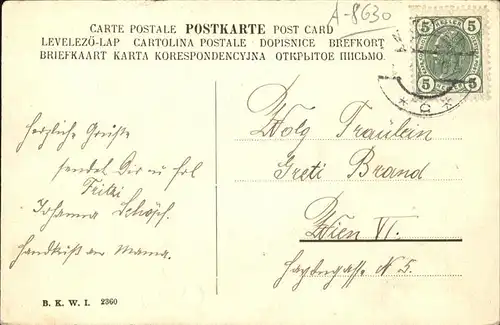 A-8630
CARTE POSTALE POSTKARTE POST CARD
LEVELEZÖ-LAP CARTOLINA POSTALE DOPISNICE BREFKORT
BRIEFKAART KARTA KORESPONDENCYJNA ОТКРЫТОЕ ПИСЬМО.
5 HELLER 5
5 HELLER 5
Herzliche Grüße
sendet Dir u Frl
Fritzi
Johanna Schöpf.
Handkuß an Mama.
Wolg Fräulein
Greti Brand
Wien VI.
Haydngasse N 5.
B. K. W. I. 2360